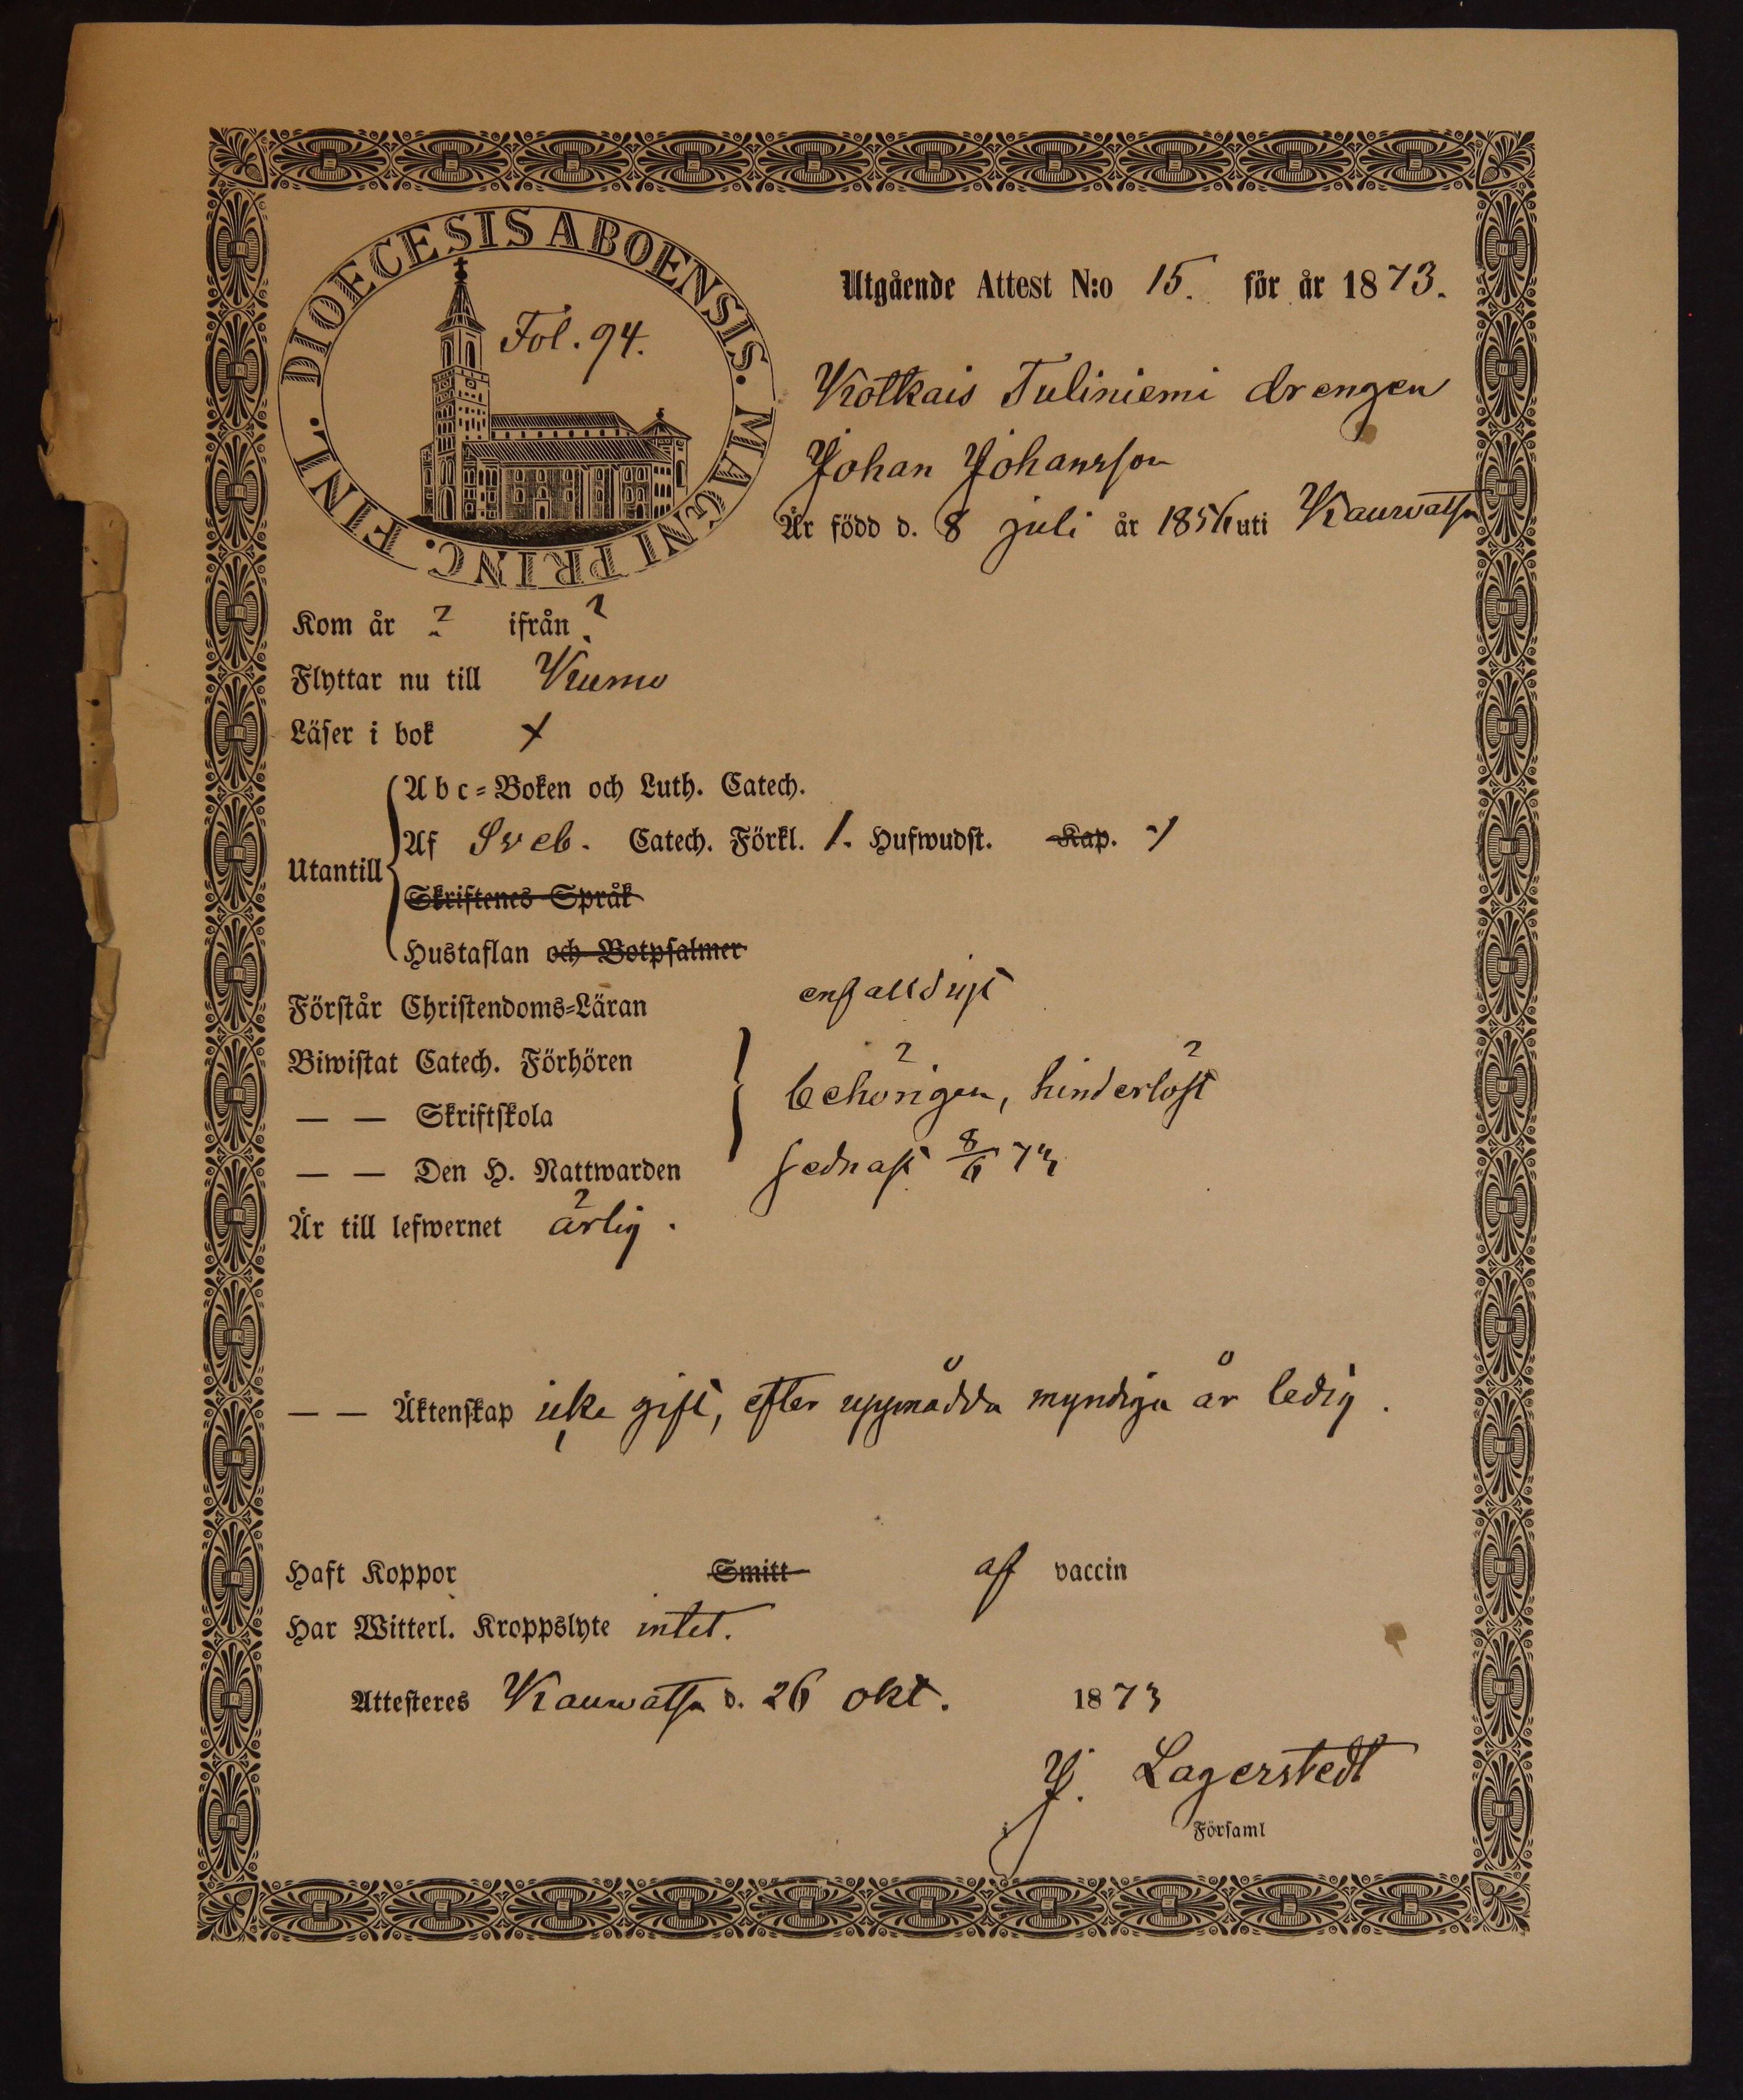 DIOECESIS ABOENSIS. MAGNI PRINC. FINL.
Fol. 94.
Utgående Attest N:o 15. för år 1873.
Kotkais Tuliniemi drengen
Johan Johansson
Är född d. 8 juli år 1856 uti Kauvatsa
Kom år ? ifrån ?
Flyttar nu till Kumo
Läser i bok x
Utantill
Abc-Boken och Luth. Catech.
Af Sveb. Catech. Förkl. 1. Hufwudst. Kap.
Skriftenes Språk
Hustaflan och Botpsalmer
Förstår Christendoms-Läran enfalldigt
Biwistat Catech. Förhören
— — Skriftskola behörigen, hinderlöst
— — Den H. Nattwarden sednast 8/6 73
Är till lefwernet ärlig.
— — Äktenskap icke gift, efter uppnådda myndiga år ledig.
Haft Koppor Smitt af vaccin
Har Witterl. Kroppslyte intet.
Attesteres Kauwatsa d. 26 okt. 1873
J. Lagerstedt
Församl